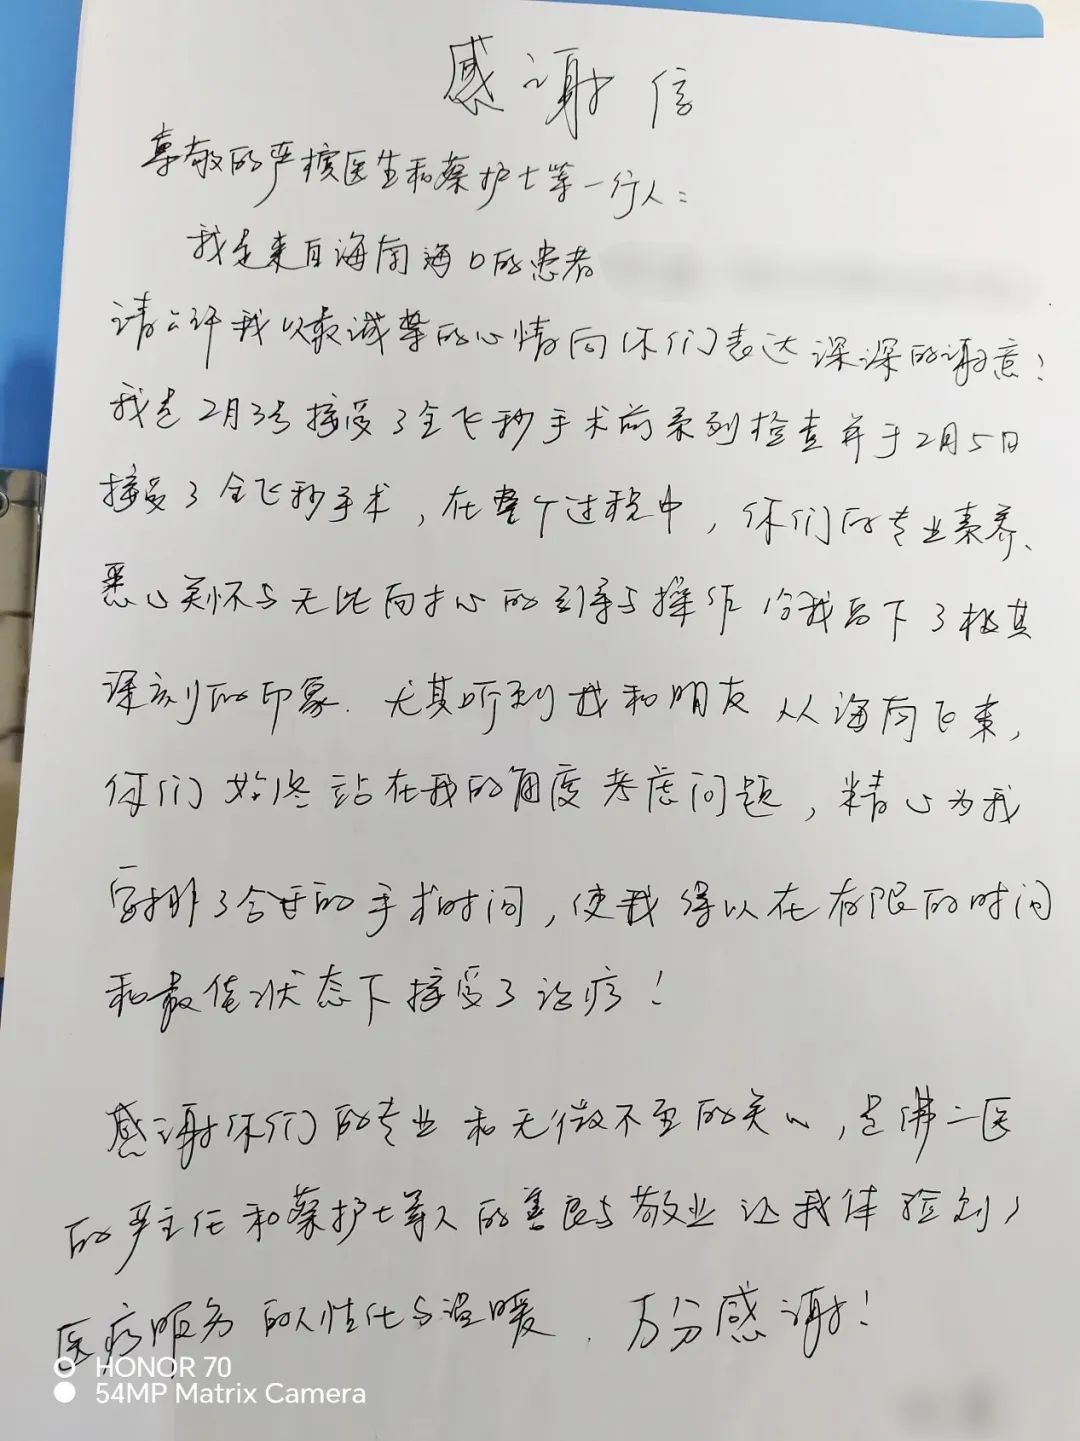 感谢信
尊敬的严榕医生和蔡护士等一行人：
我是来自海南海口的患者
请允许我以最诚挚的心情向你们表达深深的谢意！
我是2月3号接受了全飞秒手术前系列检查并于2月5日
接受了全飞秒手术，在整个过程中，你们的专业素养、
悉心关怀与无比耐心的引导与操作给我留下了极其
深刻的印象．尤其听到我和朋友从海南飞来，
你们始终站在我的角度考虑问题，精心为我
安排了合适的手术时间，使我得以在有限的时间
和最佳状态下接受了治疗！
感谢你们的专业和无微不至的关心，是佛二医
的严主任和蔡护士等人的善良与敬业让我体验到了
医疗服务的人性化与温暖．万分感谢！
HONOR 70
54MP Matrix Camera